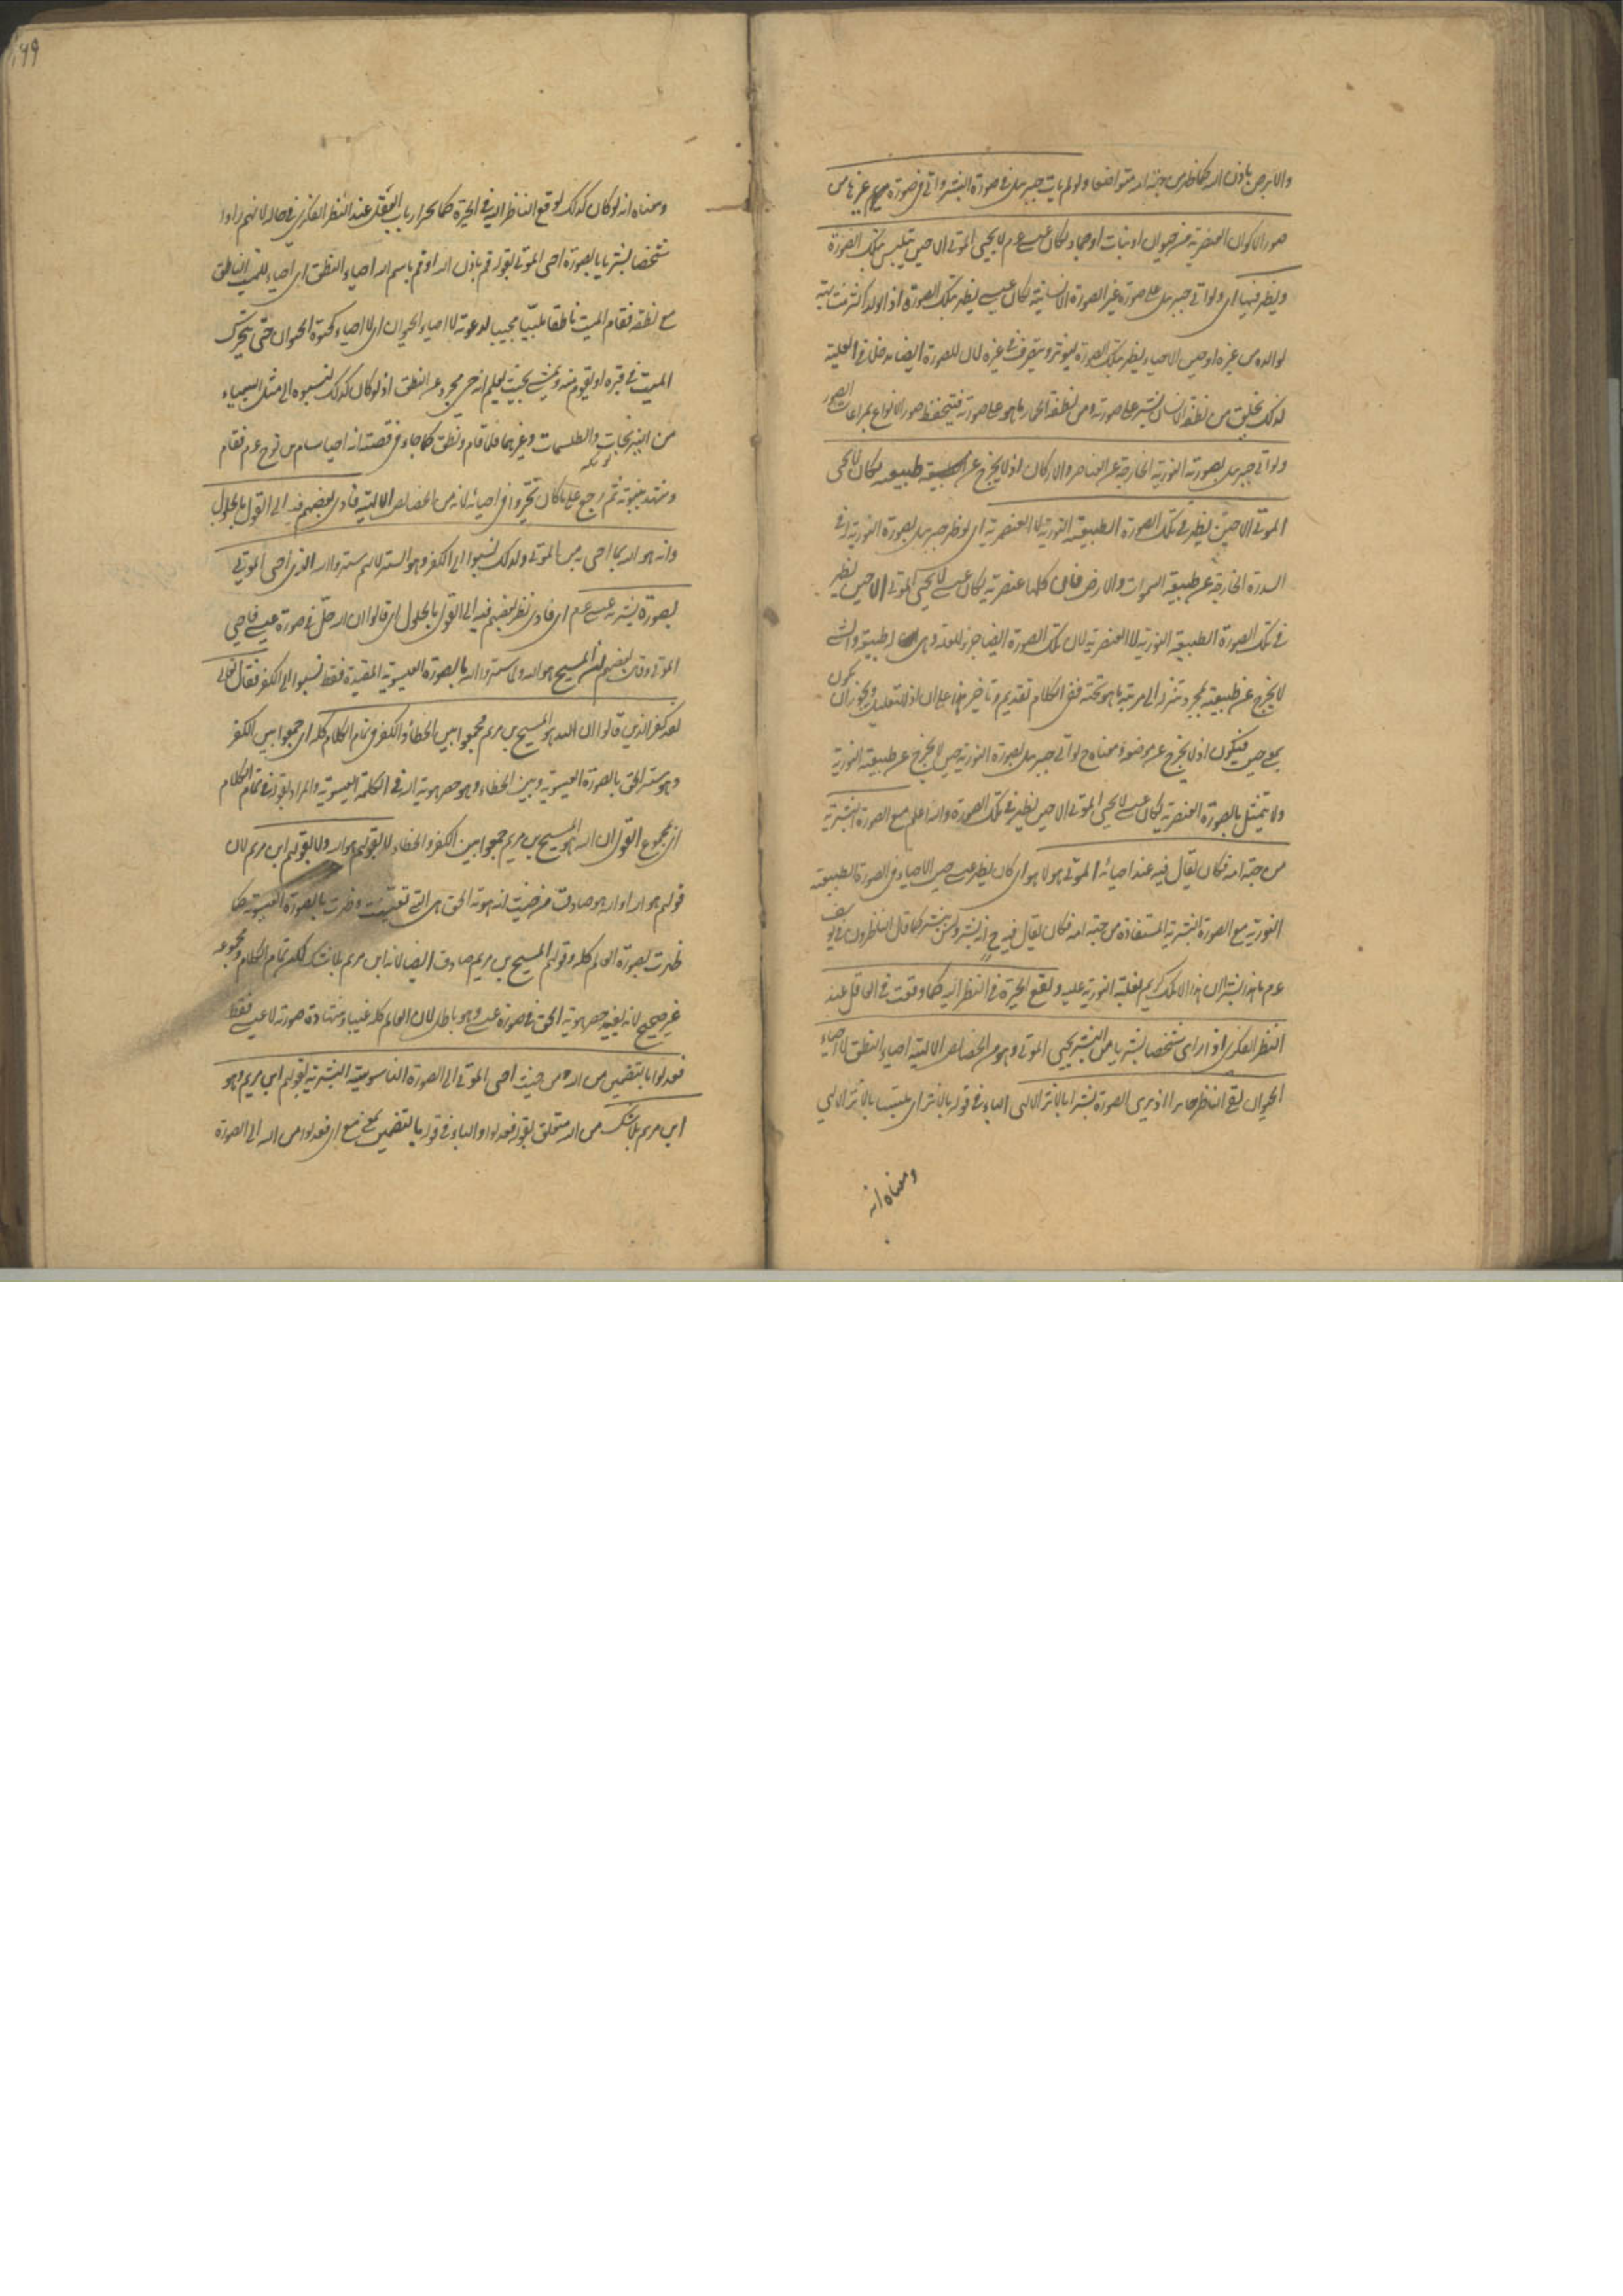 والابرص باذن الله كما ظهر من جهة امه متواضعا ولو لم يات جبريل في صورة البشر واتى في صورة غيرها من
صور الاكوان العنصرية من حيوان او نبات او جماد لكان عيسى عم لا يحيى الموتى الا حين يتلبس بتلك الصورة
ويظهر فيها اى ولو اتى جبريل على صورة غير الصورة الانسانية لكان عيسى يظهر بتلك الصورة اذ الولد اكثر مشابهة
لوالده من غيره او حين الاحياء يظهر بتلك الصورة ليؤثر ويتصرف في غيره لان للصورة ايضا مدخلا في العلية
لذلك يخلق من نطفة الانسان بشر على صورته ومن نطفة الحمار ما هو على صورته فيتحفظ صور الانواع بمراعات الصور
ولو اتى جبريل بصورته النورية الخارجة عن العناصر والاركان اذ لا يخرج عن طبيعته لكان لا يحيى
الموتى الا حين يظهر في تلك الصورة الطبيعية النورية لا العنصرية اى لو ظهر جبريل بصورة النورية في
السدرة الخارجة عن طبيعة السموات والارض فان كلها عنصرية لكان عيسى لا يحيى الموتى الا حين يظهر
في تلك الصورة الطبيعية النورية لا العنصرية لان تلك الصورة ايضا جزء للعلة وهى له طبيعة والشى
لا يخرج عن طبيعته بمجرد تنزله الى مرتبة ما هو تحته ففى الكلام تقديم وتاخير هذا على ان اذ للتعليل ويجوز ان يكون
بمعنى حين فيكون اذ لا يخرج عن موضعه ومعناه ح لو اتى جبريل بصورة النورية حين لا يخرج عن طبيعته النورية
ولا يتمثل بالصورة العنصرية لكان عيسى لا يحيى الموتى الا حين يظهر في تلك الصورة والله اعلم مع الصورة البشرية
من جهة امه فكان يقال فيه عند احيائه الموتى هو لا هو اى كان يظهر عيسى حين الاحياء في الصورة الطبيعية
النورية مع الصورة البشرية المستفادة من جهة امه فكان يقال فيه ح انه بشر وليس ببشر كما قال الناظرون في يوسف
عم ما هذا بشرا ان هذا الا ملك كريم لغلبة النورية عليه وتقع الحيرة في النظر اليه كما وقعت في العاقل عند
النظر الفكرى اذا راى شخصا بشريا من البشر يحيى الموتى وهو من الخصائص الالهية احياء النطق لا احياء
الحيوان بقى الناظر حائرا اذ يرى الصورة بشرا بالاثر الالهى الباء في قوله بالاثر اى ملتبسا بالاثر الالهى
ومعناه انه
ومعناه انه لو كان كذلك لوقع الناظر اليه في الحيرة كما تحير ارباب العقل عند النظر الفكرى في حاله لانهم راوا
شخصا بشريا بالصورة احى الموتى بقوله قم باذن الله او قم باسم الله احياء النطق اى احياء للميت الناطق
مع نطقه فقام الميت ناطقا ملبيا مجيبا لدعوته لا احياء الحيوان اى لا احياء كحيوة الحيوان حتى يتحرك
الميت في قبره او يقوم منه ويمشى بحيث يعلم انه حى مجرد عن النطق اذ لو كان كذلك لنسبوه الى مثل السيمياء
من النيرنجات والطلسمات وغيرهما فلما قام ونطق كما جاء في قصته انه احيا سام بن نوح عم فقام
وشهد بنبوته ثم رجع على ما كان تحيروا في احيائه لانه من الخصائص الالهية فادى بعضهم فيه الى القول بالحلول
وانه هو الله بما احى به من الموتى ولذلك نسبوا الى الكفر وهو الستر لانهم ستروا الله الذى احى الموتى
بصورة بشرية عيسى عم اى فادى نظر بعضهم فيه الى القول بالحلول اى قالوا ان الله حل في صورة عيسى فاحيى
الموتى وقال بعضهم ان المسيح هو الله ولما ستروا الله بالصورة العيسوية المقيدة فقط نسبوا الى الكفر فقال تعالى
لقد كفر الذين قالوا ان الله هو المسيح بن مريم فجمعوا بين الخطاء والكفر في تمام الكلام كله اى جمعوا بين الكفر
وهو ستر الحق بالصورة العيسوية وبين الخطاء وهو حصر هوية الله في الكلمة العيسوية والمراد بقوله في تمام الكلام
اى مجموع القول ان الله هو المسيح بن مريم جمعوا بين الكفر والخطاء لا بقولهم هو الله ولا بقولهم ابن مريم لان
قولهم هو الله او الله هو صادق من حيث انه هوية الحق هى التى تعينت وظهرت بالصورة العيسوية كما
ظهرت بصورة العالم كله وقولهم المسيح بن مريم صادق ايضا لانه ابن مريم بلا شك لكن تمام الكلام ومجموعه
غير صحيح لانه يفيد حصر هوية الحق في صورة عيسى وهو باطل لان العالم كله غيبا وشهادة صورته لا عيسى فقط
فعدلوا بالتضمين من الله من حيث احى الموتى الى الصورة الناسوتية البشرية بقولهم ابن مريم وهو
ابن مريم بلا شك من الله متعلق بقوله فعدلوا والباء في قوله بالتضمين بمعنى مع اى فعدلوا من الله الى الصورة